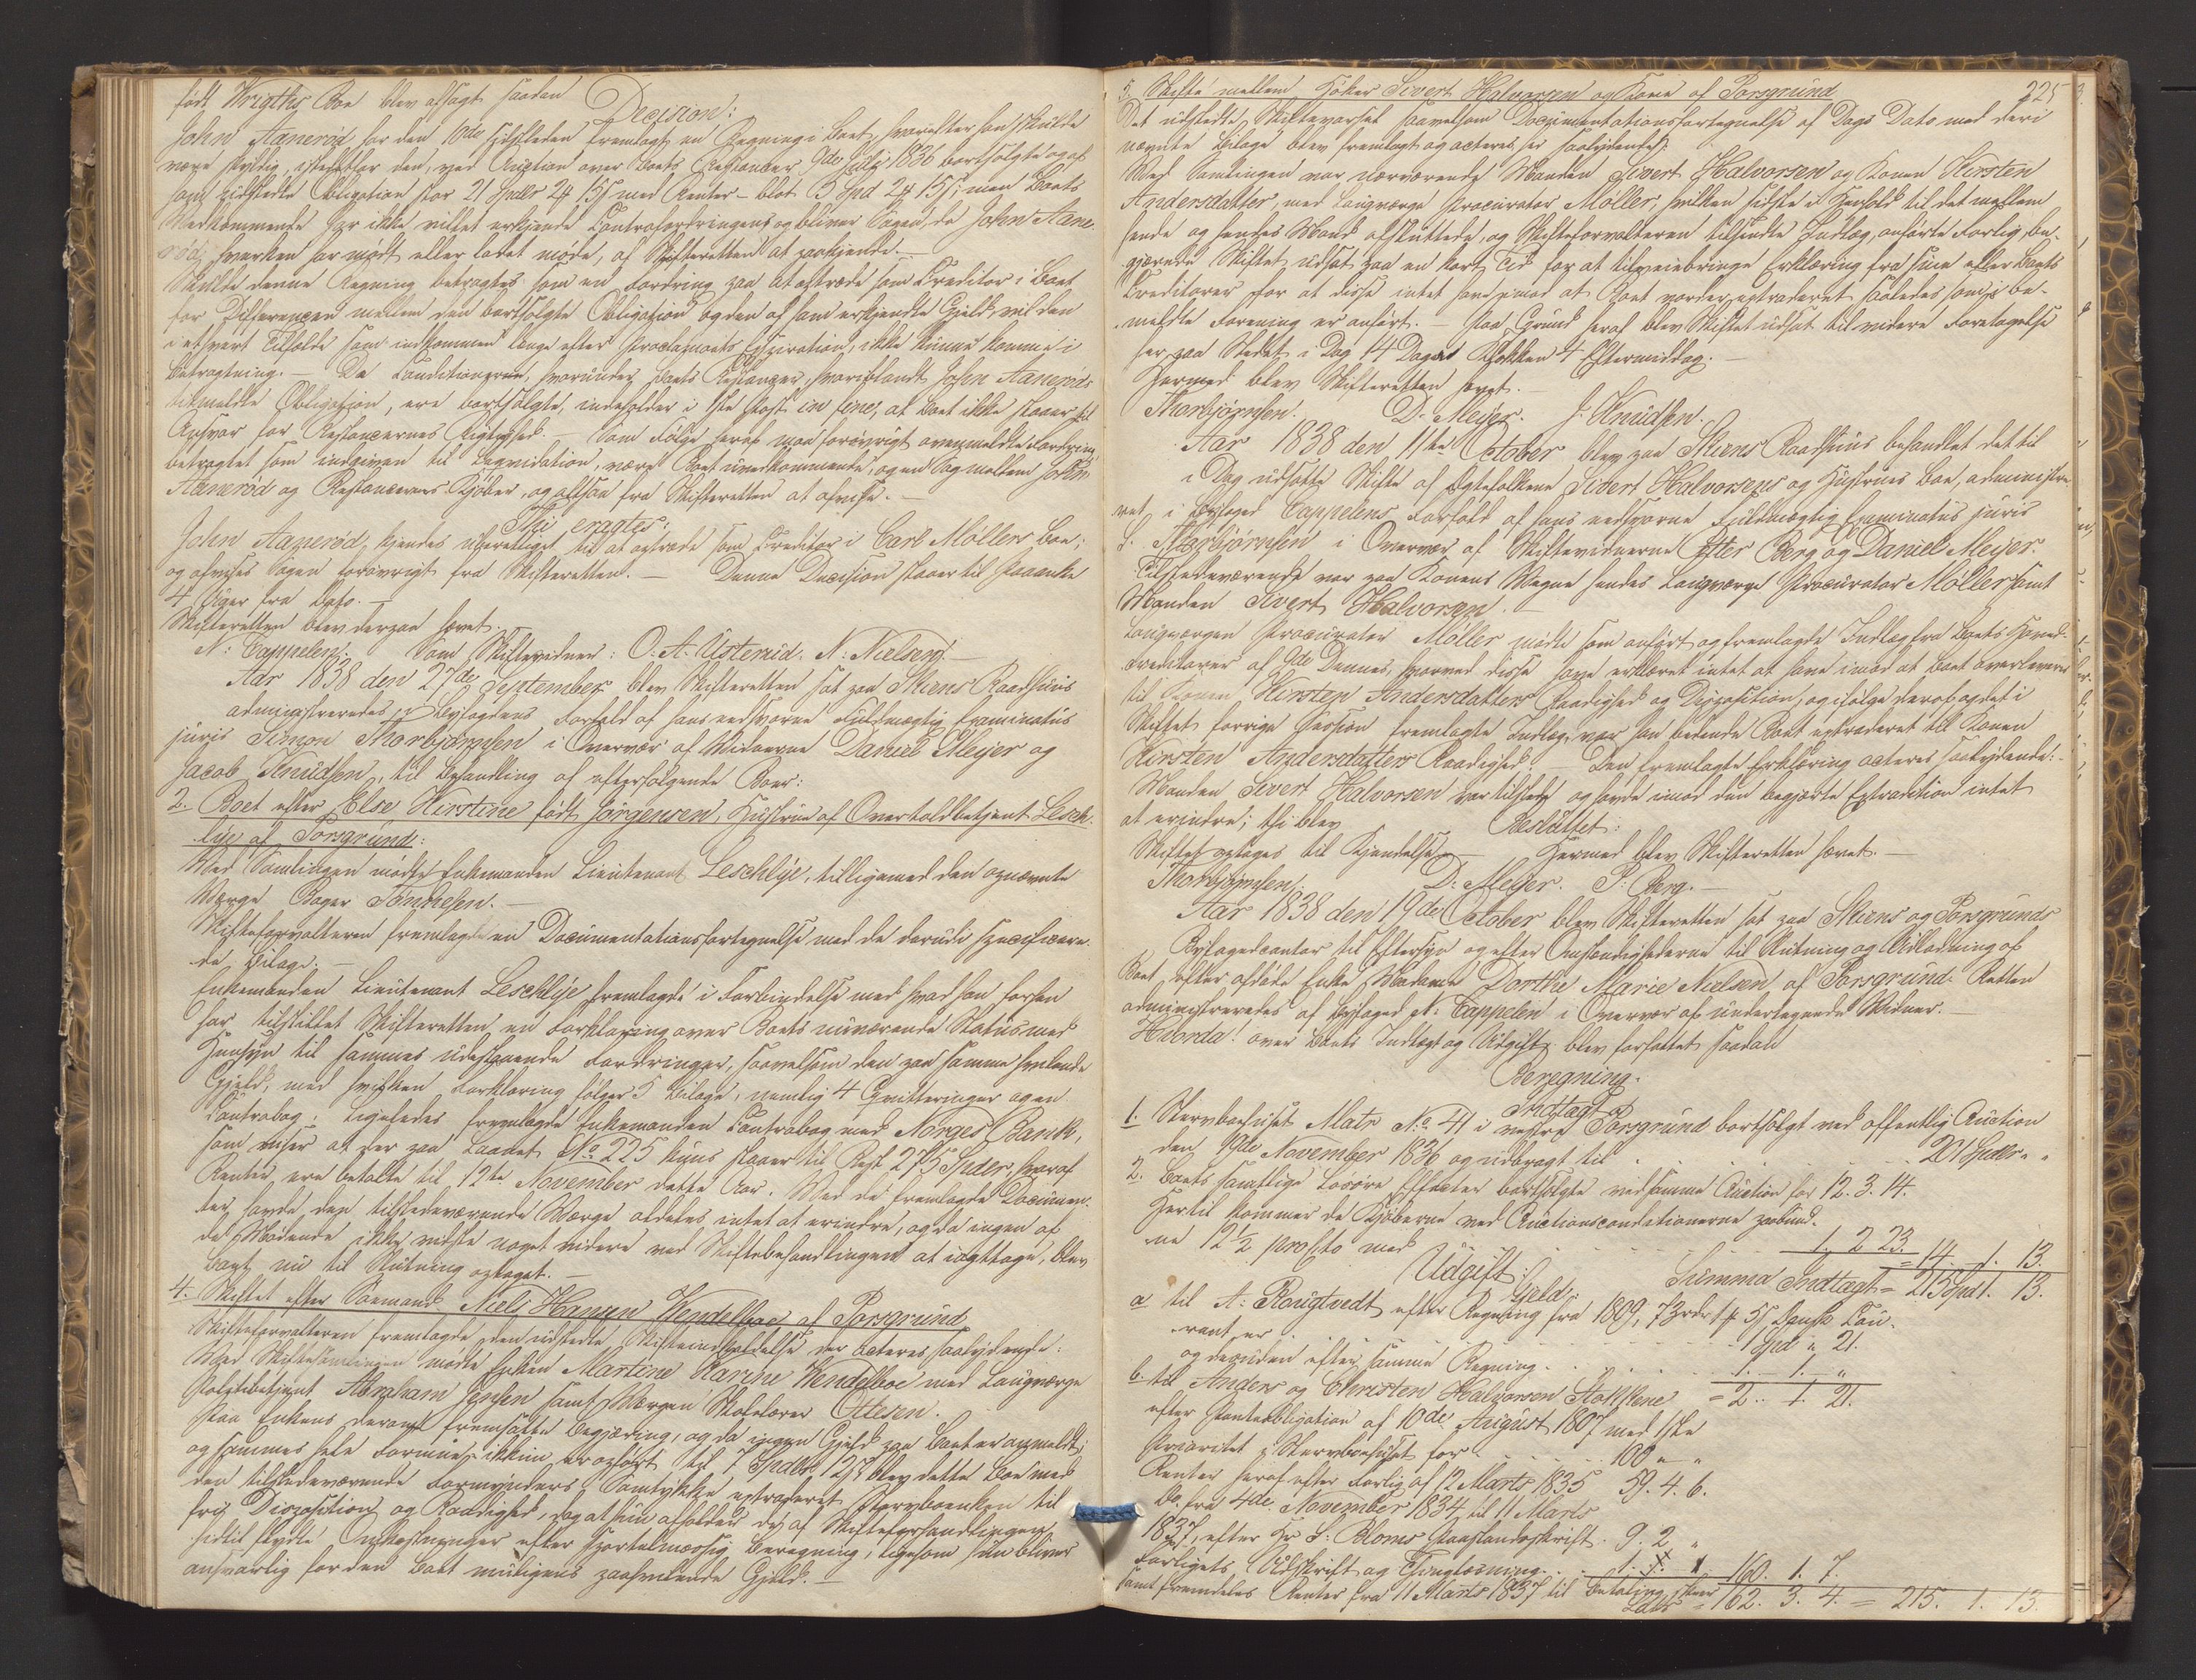 født Wrigths Boe blev afsagt saadan
Decision:
John Aanerød har den 10de sidstleden fremlagt en Regning i Boet, hvorefter han skulde
være skyldig, istedetfor den, ved Auction over Boets Restancer 9de Juli 1836 bortsolgte og af
ham udstedte Obligation stor 21 Spdlr 24 15 s med Renter – blot 3 Spd 24 15 s; men Boets
Vedkommende har ikke villet erkjende Contrafordringens og bliver Sagen, da John Aane-
rød, hverken har mødt eller ladet møde, af Skifteretten at paakjende. –
Skulde denne Regning betragtes som en Fordring paa at optræde som Creditor i Boet
for Differencen mellem den bortsolgte Obligation og den af ham erkjendte Gjeld, vil den
i ethvert Tilfælde som indkommen længe efter Proclamaets Expiration, ikke kunne komme i
Betragtning. – De Conditioner, hvorunder Boets Restancer, hvoriblandt John Aanerøds
bemeldte Obligation, ere bortsolgte, indeholder i Post in fine, at Boet ikke staaer til
Ansvar for Restancernes Rigtighed. – Som Følge heraf maa forøvrigt ovenmeldte Fordring
betragtet som indgiven til Liqvidation, være Boet uvedkommende, og en Sag mellem John
Aanerød og Restancernes Kjøber, og altsaa fra Skifteretten at afvise. –
Thi eragtes:
John Aanerød kjendes uberettiget til at optræde som Creditor i Carl Møllers Boe;
og afvises Sagen forøvrigt fra Skifteretten. – Denne Decision staaer til Paaanke
4 Uger fra Dato. –
Skifteretten blev derpaa hævet.
N: Cappelen. Som Skiftevidner: O. A. Ustenrid. N: Nielsen. –
Aar 1838 den 27de September blev Skifteretten sat paa Skiens Raadhuus
administreredes i Byfogdens Forfald af hans edsvorne Fuldmægtig Examinatus
juris Simon Thorbjørnsen i Overvær af Vidnerne Daniel Meijer og
Jacob Knudsen, til Behandling af efterfølgende Boer:
2. Boet efter Else Kirstine født Jørgensen, Hustrue af Overtoldbetjent Lesch-
lye af Porsgrund:
Ved Samlingen mødte Enkemanden Lieutenant Leschlye, tilligemed den opnævnte
Værge Bager Tønnesen. –
Skifteforvalteren fremlagde en Documentationsfortegnelse med de derudi specificere-
de Bilage: –
Enkemanden Lieutenant Leschlye fremlagde i Forbindelse med hvad han forhen
har tilstillet Skifteretten, en Forklaring over Boets nuværende Status med
Hensyn til sammes udestaaende Fordringer, saavelsom den paa samme hvilende
Gjeld, med hvilken Forklaring følger 5 Bilage, nemlig 4 Qvitteringer og en
Contrabog. Ligeledes fremlagde Enkemanden Contrabog med Norges Bank,
som viser at der paa Laanet No 225 kuns staaer til Rest 275 Spider, hvoraf
Renter ere betalte til 12te November dette Aar. Med de fremlagde Documen-
ter, havde den tilstedeværende Værge aldeles intet at erindre, og da ingen af
de Mødende ikke vidste noget videre ved Skiftebehandlingen at iagttage, blev
Boet nu til Slutning optaget. –
4. Skiftet efter Søemand Niels Hansen Wendelboe af Porsgrund
Skifteforvalteren fremlagde den udstedte Skifteindkaldelse der acteres saalydende:
Ved Skiftesamlingen mødte Enken Martine Karine Wendelboe med Laugværge
Politibetjent Abraham Jensen samt Værgen Skolelærer Ottesen.
Paa Enkens derom fremsatte Begjæring, og da ingen Gjeld paa Boet er anmeldt,
og sammes hele Formue ikkun er opført til 7 Spdlr 12 s blev dette Boe med
den tilstedeværende Formynders Samtykke extraderet Stervboenken til
frie Disposition og Raadighed, dog at hun afholder de af Skifteforhandlingen
hidtil flydte Omkostninger efter sportelmæssig Beregning, ligesom hun bliver
ansvarlig for den Boet muligens paahvilende Gjeld. –
225
5. Skifte mellem Høker Sivert Halvorsen og Kone af Porsgrund
Det udstedte Skiftevarsel saavelsom Documentationsfortegnelse af Dags Dato med deri
nævnte Bilage blev fremlagt og acteres her saalydende:
Ved Samlingen var nærværende Manden Sivert Halvorsen og Konen Kirsten
Andersdatter, med Laugværge Procurator Møller, hvilken sidste i Henhold til det mellem
hende og hendes Mand afsluttede, og Skifteforvalteren tilsendte Indlæg, anførte Forlig, be-
gjærede Skiftet udsat paa en kort Tid for at tilveiebringe Erklæring fra sine eller Boets
Creditorer for at disse intet have imod at Boet vorder extraderet saaledes som i be-
meldte Forening er anført. – Paa Grund heraf blev Skiftet udsat til videre Foretagelse
her paa Stedet i Dag 14 Dage Klokken 4 Eftermiddag. –
Hermed blev Skifteretten hævet. –
Thorbjørnsen. D. Meijer. J. Knudsen.
Aar 1838 den 11te October blev paa Skiens Raadhuus behandlet det til
i Dag udsatte Skifte af Ægtefolkene Sivert Halvorsens og Hustrues Boe, administre-
ret i Byfoged Cappelens Forfald af hans edsvorne Fuldmægtig Examinatus juris
S. Thorbjørnsen i Overvær af Skiftevidnerne Peter Berg og Daniel Meijer.
Tilstedeværende var paa Konens Vegne hendes Laugværge Procurator Møller samt
Manden Sivert Halvorsen. –
Laugværgen Procurator Møller mødte som anført og fremlagde Indlæg fra Boets Hoved-
creditorer af 9de Dennes, hvorved disse have erklæret intet at have imod at Boet overleveres
til Konen Kirsten Andersdatters Raadighed og Disposition, og ifølge deraf og det i
Skiftet forrige Session fremlagte Indlæg, var han bedende Boet extraderet til Konen
Kirsten Andersdatters Raadighed. – Den fremlagte Erklæring acteres saalydende: –
Manden Sivert Halvorsen var tilstede og havde imod den begjærte Extradition intet
at erindre; thi blev Besluttet:
Skiftet optages til Kjendelse. – Hermed blev Skifteretten hævet. –
Thorbjørnsen. D: Meijer. P: Berg. –
Aar 1838 den 19de October blev Skifteretten sat paa Skiens og Porsgrunds
Byfogedcontor til Eftersyn og efter Omstændighederne til Slutning og Udlodning af
Boet efter afdøde Enke Madame Dorthe Marie Nielsen af Porsgrund. Retten
administreredes af Byfoged N: Cappelen i Overvær af undertegnede Vidner. –
Hvorda! over Boets Indtægt og Udgift blev forfattet saadan
Beregning.
Indtægt
1. Stervboehuset Matr No 41 i vestre Porsgrund bortsolgt ved offentlig Auction
den 19de November 1836 og udbragt til . . . . 201 Spdlr " "
2. Boets samtlige Løsøre Effecter bortsolgte ved samme Auction for 12. 3. 14.
Hertil kommer de Kjøberne ved Auctionsconditionerne paabud-
ne 12½ proCto med . . . 1. 2 23. = 14. 1. 13.
Summa Indtægt = 215 Spd 1. 13.
Udgift:
Gjeld:
a til A: Rougtvedt efter Regning fra 1809, 7 Brdr 1 # 5 s Dansk Cou-
rant, er . . . 1 Spd " 21.
og desuden efter samme Regning . . . 1. 1. "
= 2. 1. 21.
b. til Anders og Christen Halvorsen Stokkene
efter Panteobligation af 10de August 1807 med 1ste
Prioritet i Stervboehuset for . . . 100 " "
Renter heraf efter Forlig af 12 Marts 1835 59. 4. 6.
Do. fra 4de November 1834 til 11 Marts
1837, efter Hr S. Bloms Paastandsskrift . 9. 2 "
Forligets Udskrift og Thinglæsning . . 1. 160. 1. 7.
samt fremdeles Renter fra 11 Marts 1837 til Betaling skeer
Lateris = 162. 3. 4. = 215. 1. 13.